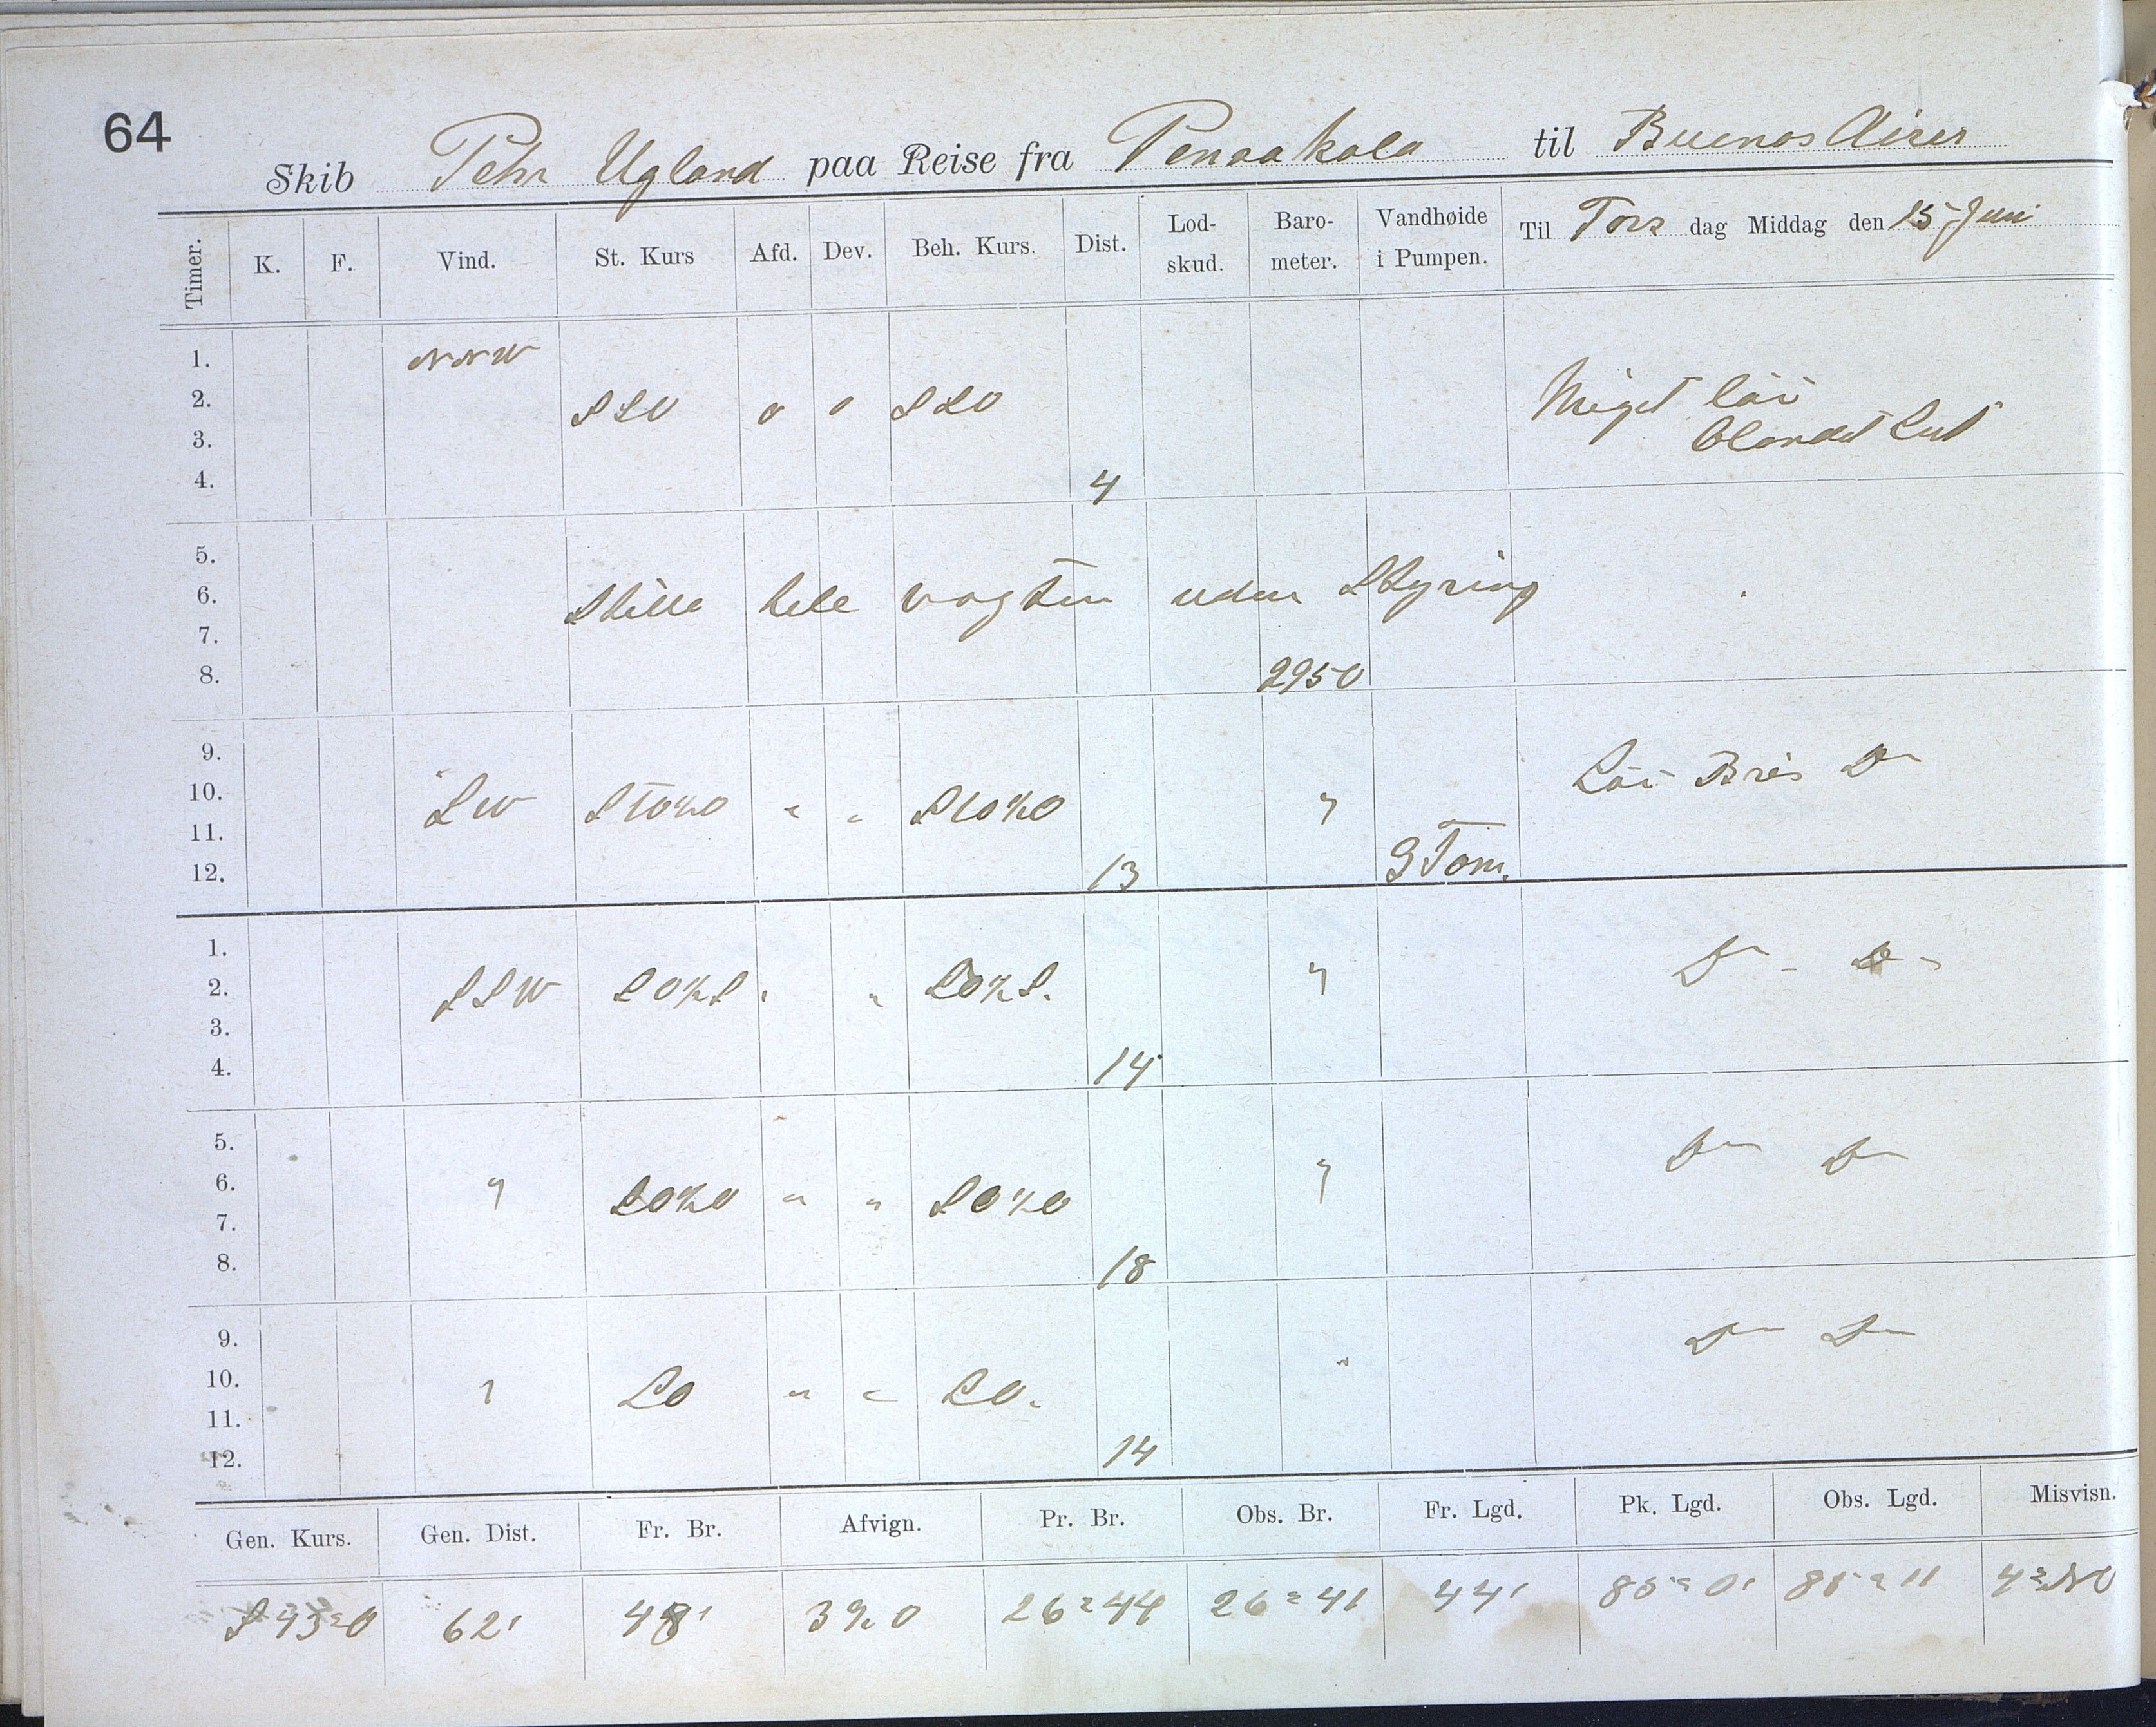 64
Skib Petr Ugland paa Reise fra Pensakola til Buenos Aires
Timer. K. F. Vind. St. Kurs Afd. Dev. Beh. Kurs. Dist. Lod-skud. Baro-meter. Vandhøide i Pumpen. Til Tors dag Middag den 15 Juni
1. NNW
2. SSO 0 0 SSO Meget löi
3. blandet Luft
4. 4
5.
6. Stille hele vagten uden Styring
7.
8. 2950
9. Löi Bris Do
10. SW StO½O " " StO½O "
11.
12. 13 9 Tom.
1. Do - Do -
2. SSW SO½S " " SO½S. "
3.
4. 14
5. Do Do
6. " SO½O " " SO½O "
7.
8. 18
9. Do Do
10. " SO " " SO. "
11.
12. 14
Gen. Kurs. Gen. Dist. Fr. Br. Afvign. Pr. Br. Obs. Br. Fr. Lgd. Pk. Lgd. Obs. Lgd. Misvisn.
S 43° O 62' 48' 26° 44 26° 41 44' 85° 0' 85° 11 4° NO